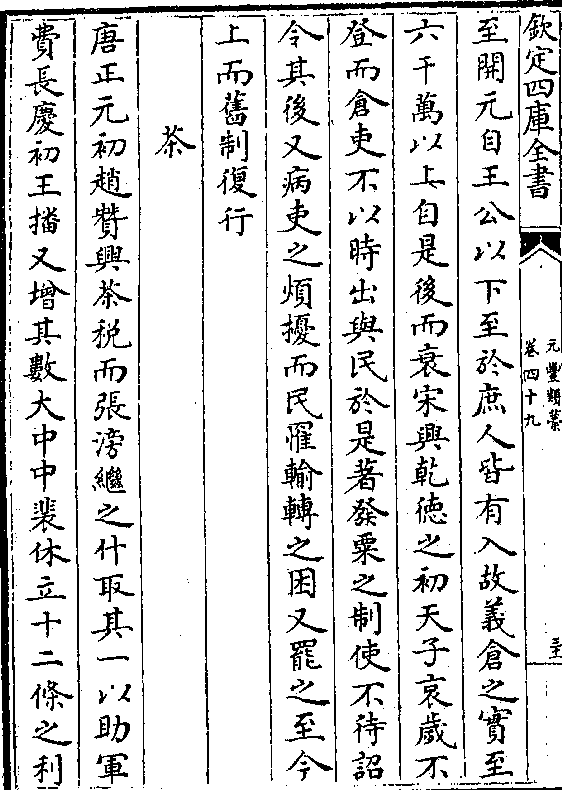 欽定四庫全書
元豐類藁
卷四十九
至開元自王公以下至於庶人皆有入故義倉之實至
六千萬以上自是後而衰宋興乾徳之初天子哀歲不
登而倉吏不以時出與民於是著發粟之制使不待詔
令其後又病吏之煩擾而民罹輸轉之困又罷之至今
上而舊制復行
茶
唐正元初趙贊興茶税而張滂繼之什取其一以助軍
費長慶初王播又增其數大中中裴休立十二條之利